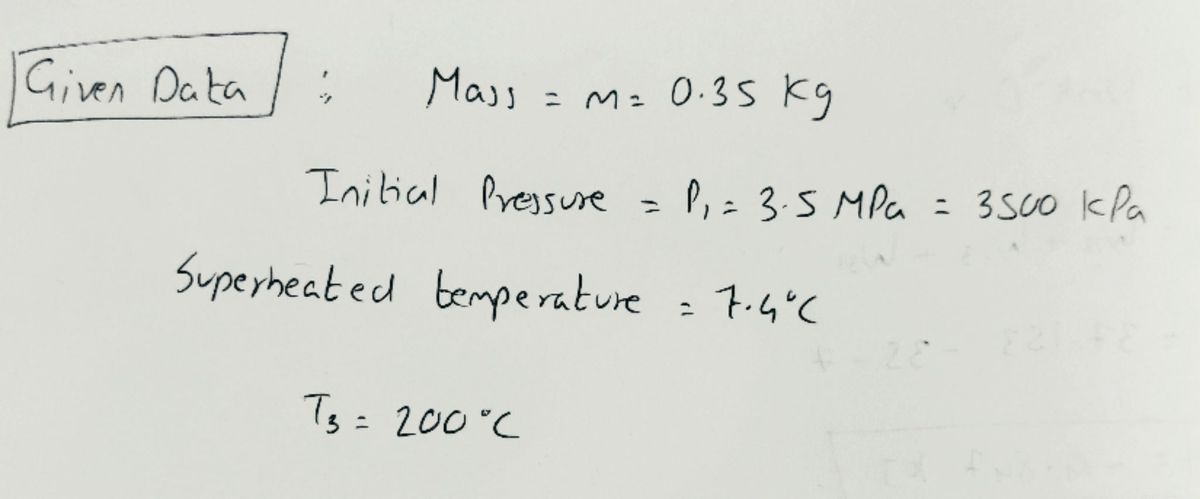 Given Data : Mass = m = 0.35 Kg
Initial Pressure = P₁ = 3.5 MPa = 3500 kPa
Superheated temperature = 7.4°C
T₃ = 200°C